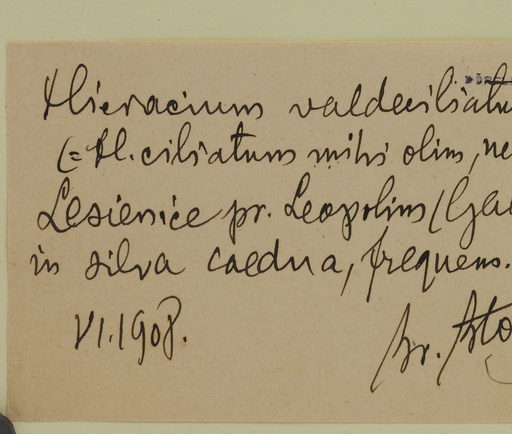 Hieracium valdeciliatu
(= H. ciliatum mihi olim, ne
Lesienice pr. Leopolim (Gal
in silva caedua, frequens.
VI.1908.
Br. Bło